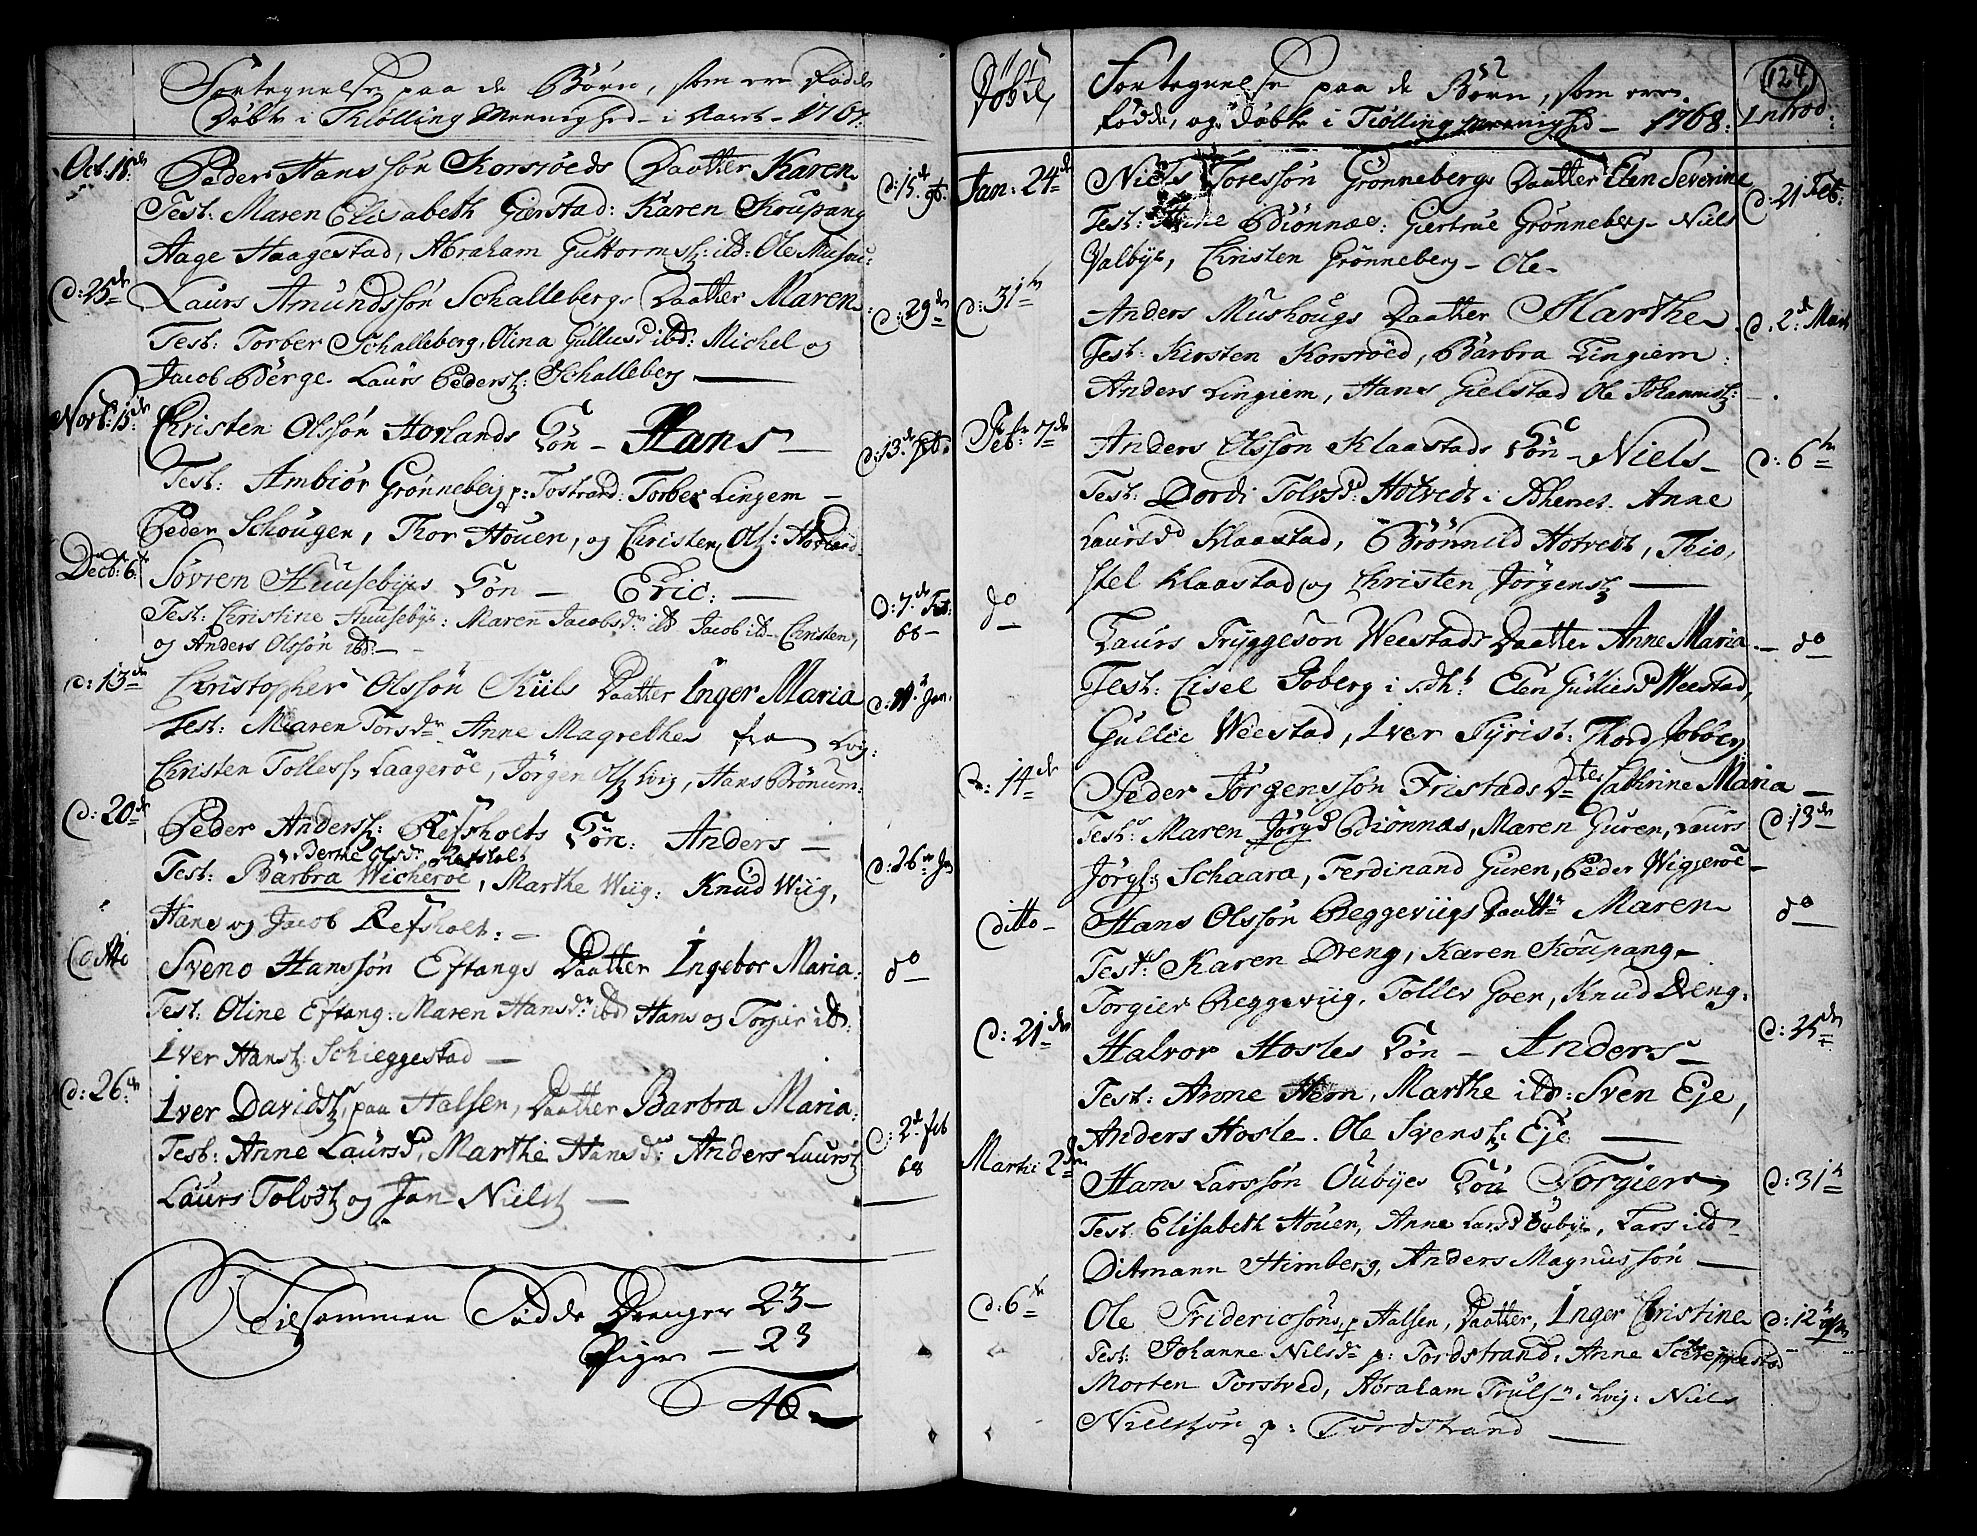 Fortegnelse paa de Børn, som ere Fødde
Døbte i Tiølling Meenighed i Aaret 1767.
Oct. 18de Peder Hanssøn Korsrøeds Daatter Karen d: 15de 9br:
Test: Maren Elisabeth Gierstad: Karen Koupang
Aage Haagestad, Abraham Guttormss: ibd: Ole
d: 25de Laurs Amundssøn Schallebergs Daatter Maren d: 29de
Test: Torber Schalleberg, Olina Gulliusd ibd: Michel og
Jacob Berge. Laurs Pederss: Schalleberg —
Novb: 15de Christen Olssøn Hovlands Søn — Hans — d: 13de
Test: Ambiør Grønneberg p: Tostrand: Torber Lingem —
Peder Schougen, Thor Houen, og Christen Ols: Hovland
Decb: 6te Søvren Huusebyes Søn — Eric: — d: 7de Feb: 68 —
Test: Christine Huusebye: Maren Jacobsdr ibd Jacob ibd — Christen,
og Anders Olssøn ibd: —
d: 13de Christopher Olssøn Kiils Daatter Inger Maria d: Jan.
Test: Maren Torsdr Anne Magrethes fra Lvg:
Christen Tolless, Laageroe, Jørgen Ols Lvig, Hans Brönum:
d: 20de Peder Anderss: Refsholts Søn: Anders —
Berthe Olsdr Refsholt
Test: Barbra Wicheroe, Marthe Wiig: Knud Wiig, d: 26de Jan
Hans og Jacob Refsholt: —
Sveno Hanssøn Eftangs Daatter Ingebor Maria: do
Test: Oline Eftang: Maren Hansdr ibd Hans og Torgier ibd:
Iver Hans: Schieggestad —
d: 26de Iver Davids, paa Halsen, Daatter Barbra Maria:
Test: Anne Laursd, Marthe Hansdr: Anders Laurs d: 2de feb 68
Laurs Tolvds og Jan Niels —
Tilsammen Fødde Drenger 23 —
Piger — 23
46 —
Døbte Fortegnelse paa de Børn, som ere 124
fødde, og døbte i Tiølling Meenighed — 1768: Introd:
Jan: 24de Niels Toressøn Grønnebergs Daatter Elen Severine d: 21 Feb:
Test: Anne Biönnes: Giertrue Grønneberg — Niels
Valbye, Christen Grønneberg — Ole —
d: 31te Anders Mushougs Daatter Marthe d: 2de Mart
Test: Kirsten Korsroed, Barbra Lingiem:
Anders Lingiem, Hans Gielstad Ole Johanness: —
Feb: 7de Anders Olssøn Klaastads Søn — Niels — d: 6te
Test: Dordi Tolvsd: Hotvedt i Anne
Laursdr Klaastad, Brønnild Hotvedt, Thio,
stel Klaastad og Christen Jørgens —
do Laurs Tryggesøn Weestads Daatter Anne Maria — do
Test: Cisel Joberg i Elen Gulliesdr Weestad,
Gullie Weestad, Iver Tyrist: Thord Joberg
d: 14de Peder Jørgenssøn Fristads Dter Cathrine Maria —
Test: Maren Jørgd Biönnes, Maren Guren, Laurs d: 13de
Jörgs: Schaara, Ferdinand Guren, Peder Wiggeroe —
ditto — Hans Olssøn Reggeviigs Daatter Maren do
Test: Karen Dreng, Karen Koupang —
Torgier Reggeviig, Tollev Goen, Knud Dreng:
d: 21de Halvor Hosles Søn — Anders — d: 25de
Test: Anne Hem, Marthe ibd: Sven Eje,
Anders Hosle. Ole Svens: Eje —
Martii 2de Hans Larssøn Oubyes Søn Torgier d: 31te
Test: Elisabeth Houen, Anne Larsd Oubye, Lars ibd
Ditmann Himberg, Anders Magnussøn —
d: 6te Ole Fridericsøns, p Halsen, Daatter, Inger Christine d: 12te
Test: Johanne Nilsdr p: Tordstrand: Anne Schreppestad
Morten Torstved, Abraham Truls: Lvig: Niels
Nielssøn p: Tordstrand —